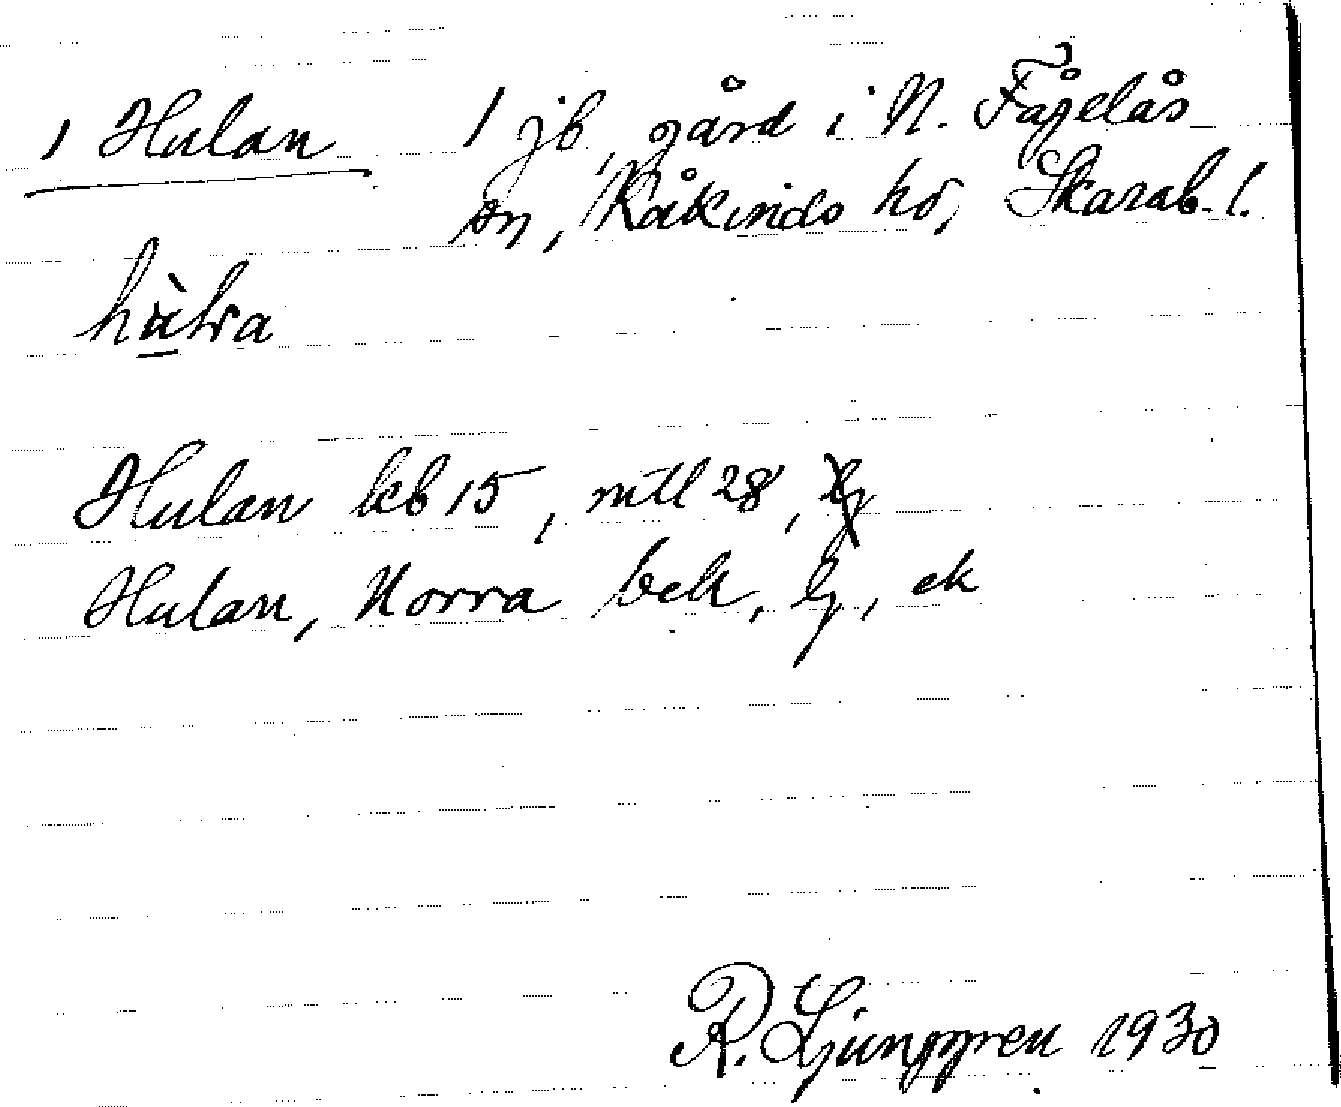 1 Hulan 1 jb, gård i N. Fågelås
sn, Kåkinds hd, Skarab. l.
Hulan kb 15, mtl 28,
Hulan, Norra bek, lg, ek
R. Ljunggren 1930